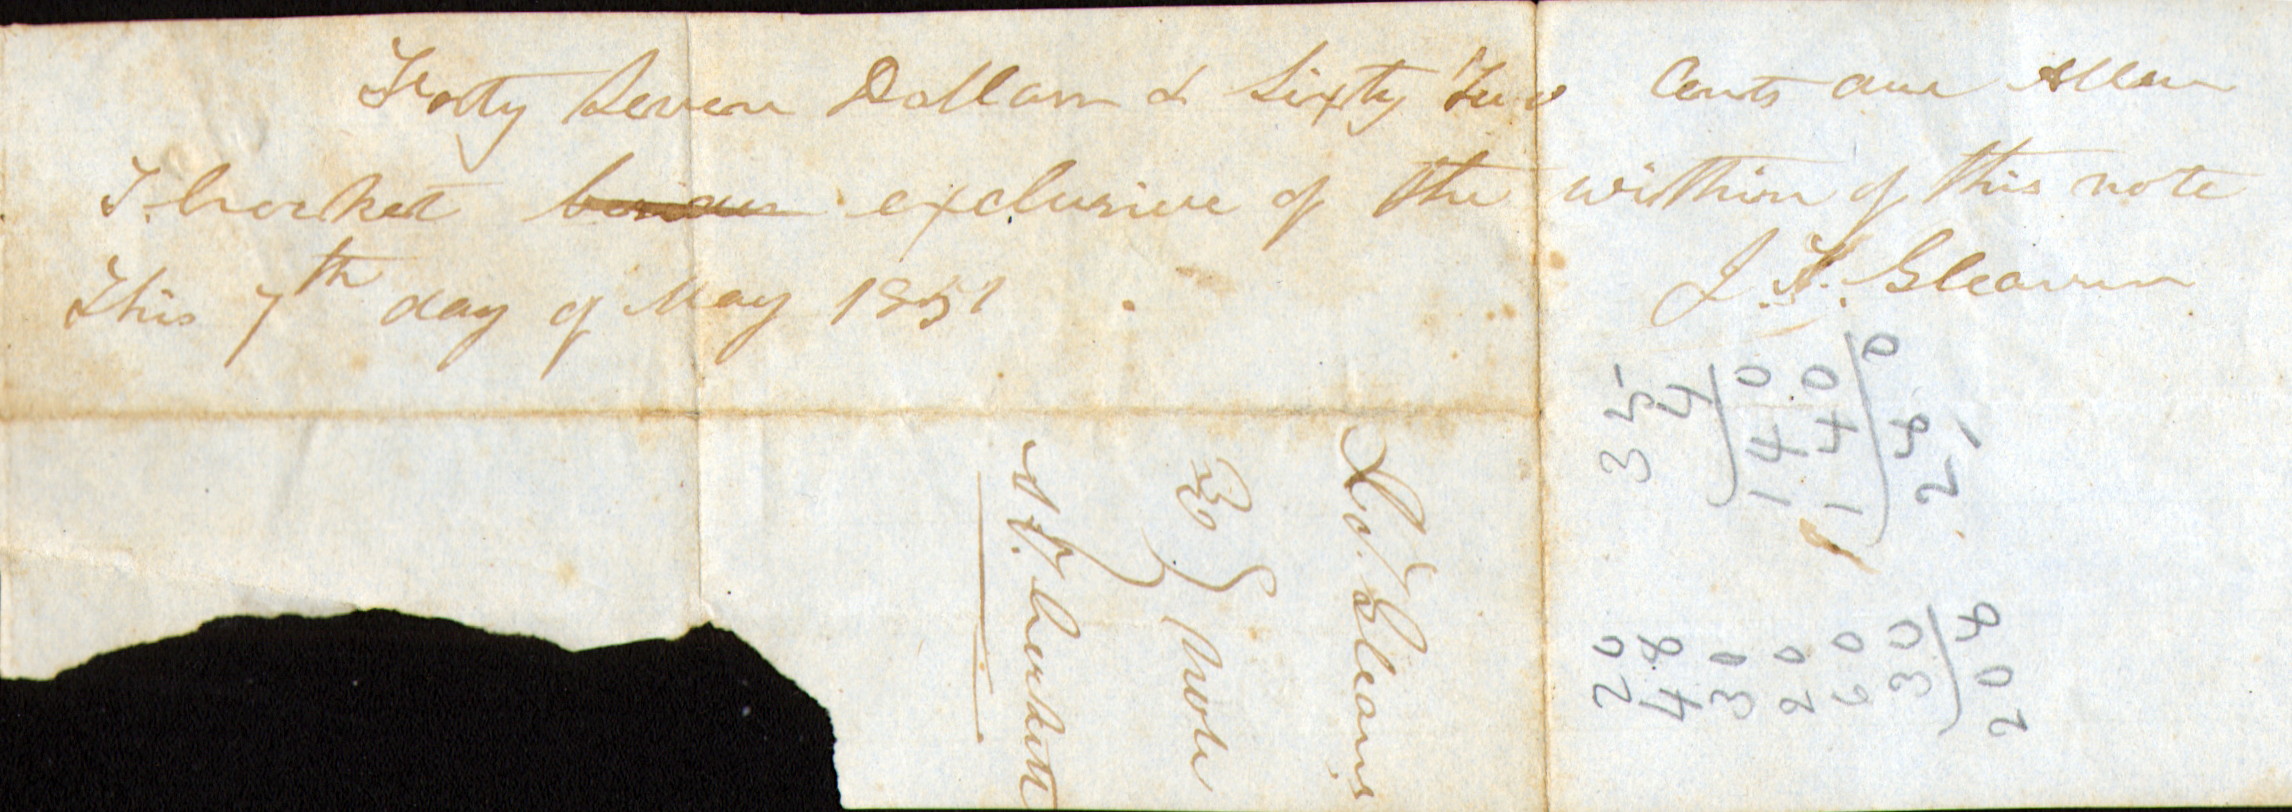 Forty Seven Dollars & Sixty Two Cents due Allen
T. Crocket exclusive of the within of this note
This 7th day of May 1851
J. H. Gleaves
35
4
140
140
0
48
2
20
48
30
20
60
30
208
Gleaves
To } Note
A. T. Crockett